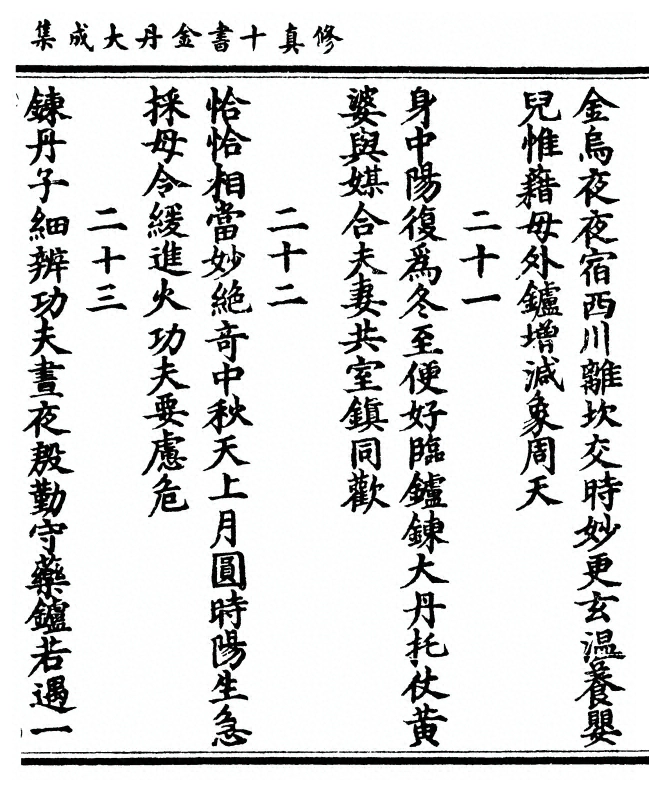 修真十書金丹大成集
金烏夜夜宿西川離坎交時妙更玄温養嬰
兒惟藉母外鑪增減象周天
二十一
身中陽復爲冬至便好臨鑪鍊大丹托仗黃
婆與媒合夫妻共室鎮同歡
二十二
恰恰相當妙絶竒中秋天上月圓時陽生急
採毋令緩進火功夫要慮危
二十三
鍊丹子細辨功夫晝夜殷勤守藥鑪若遇一